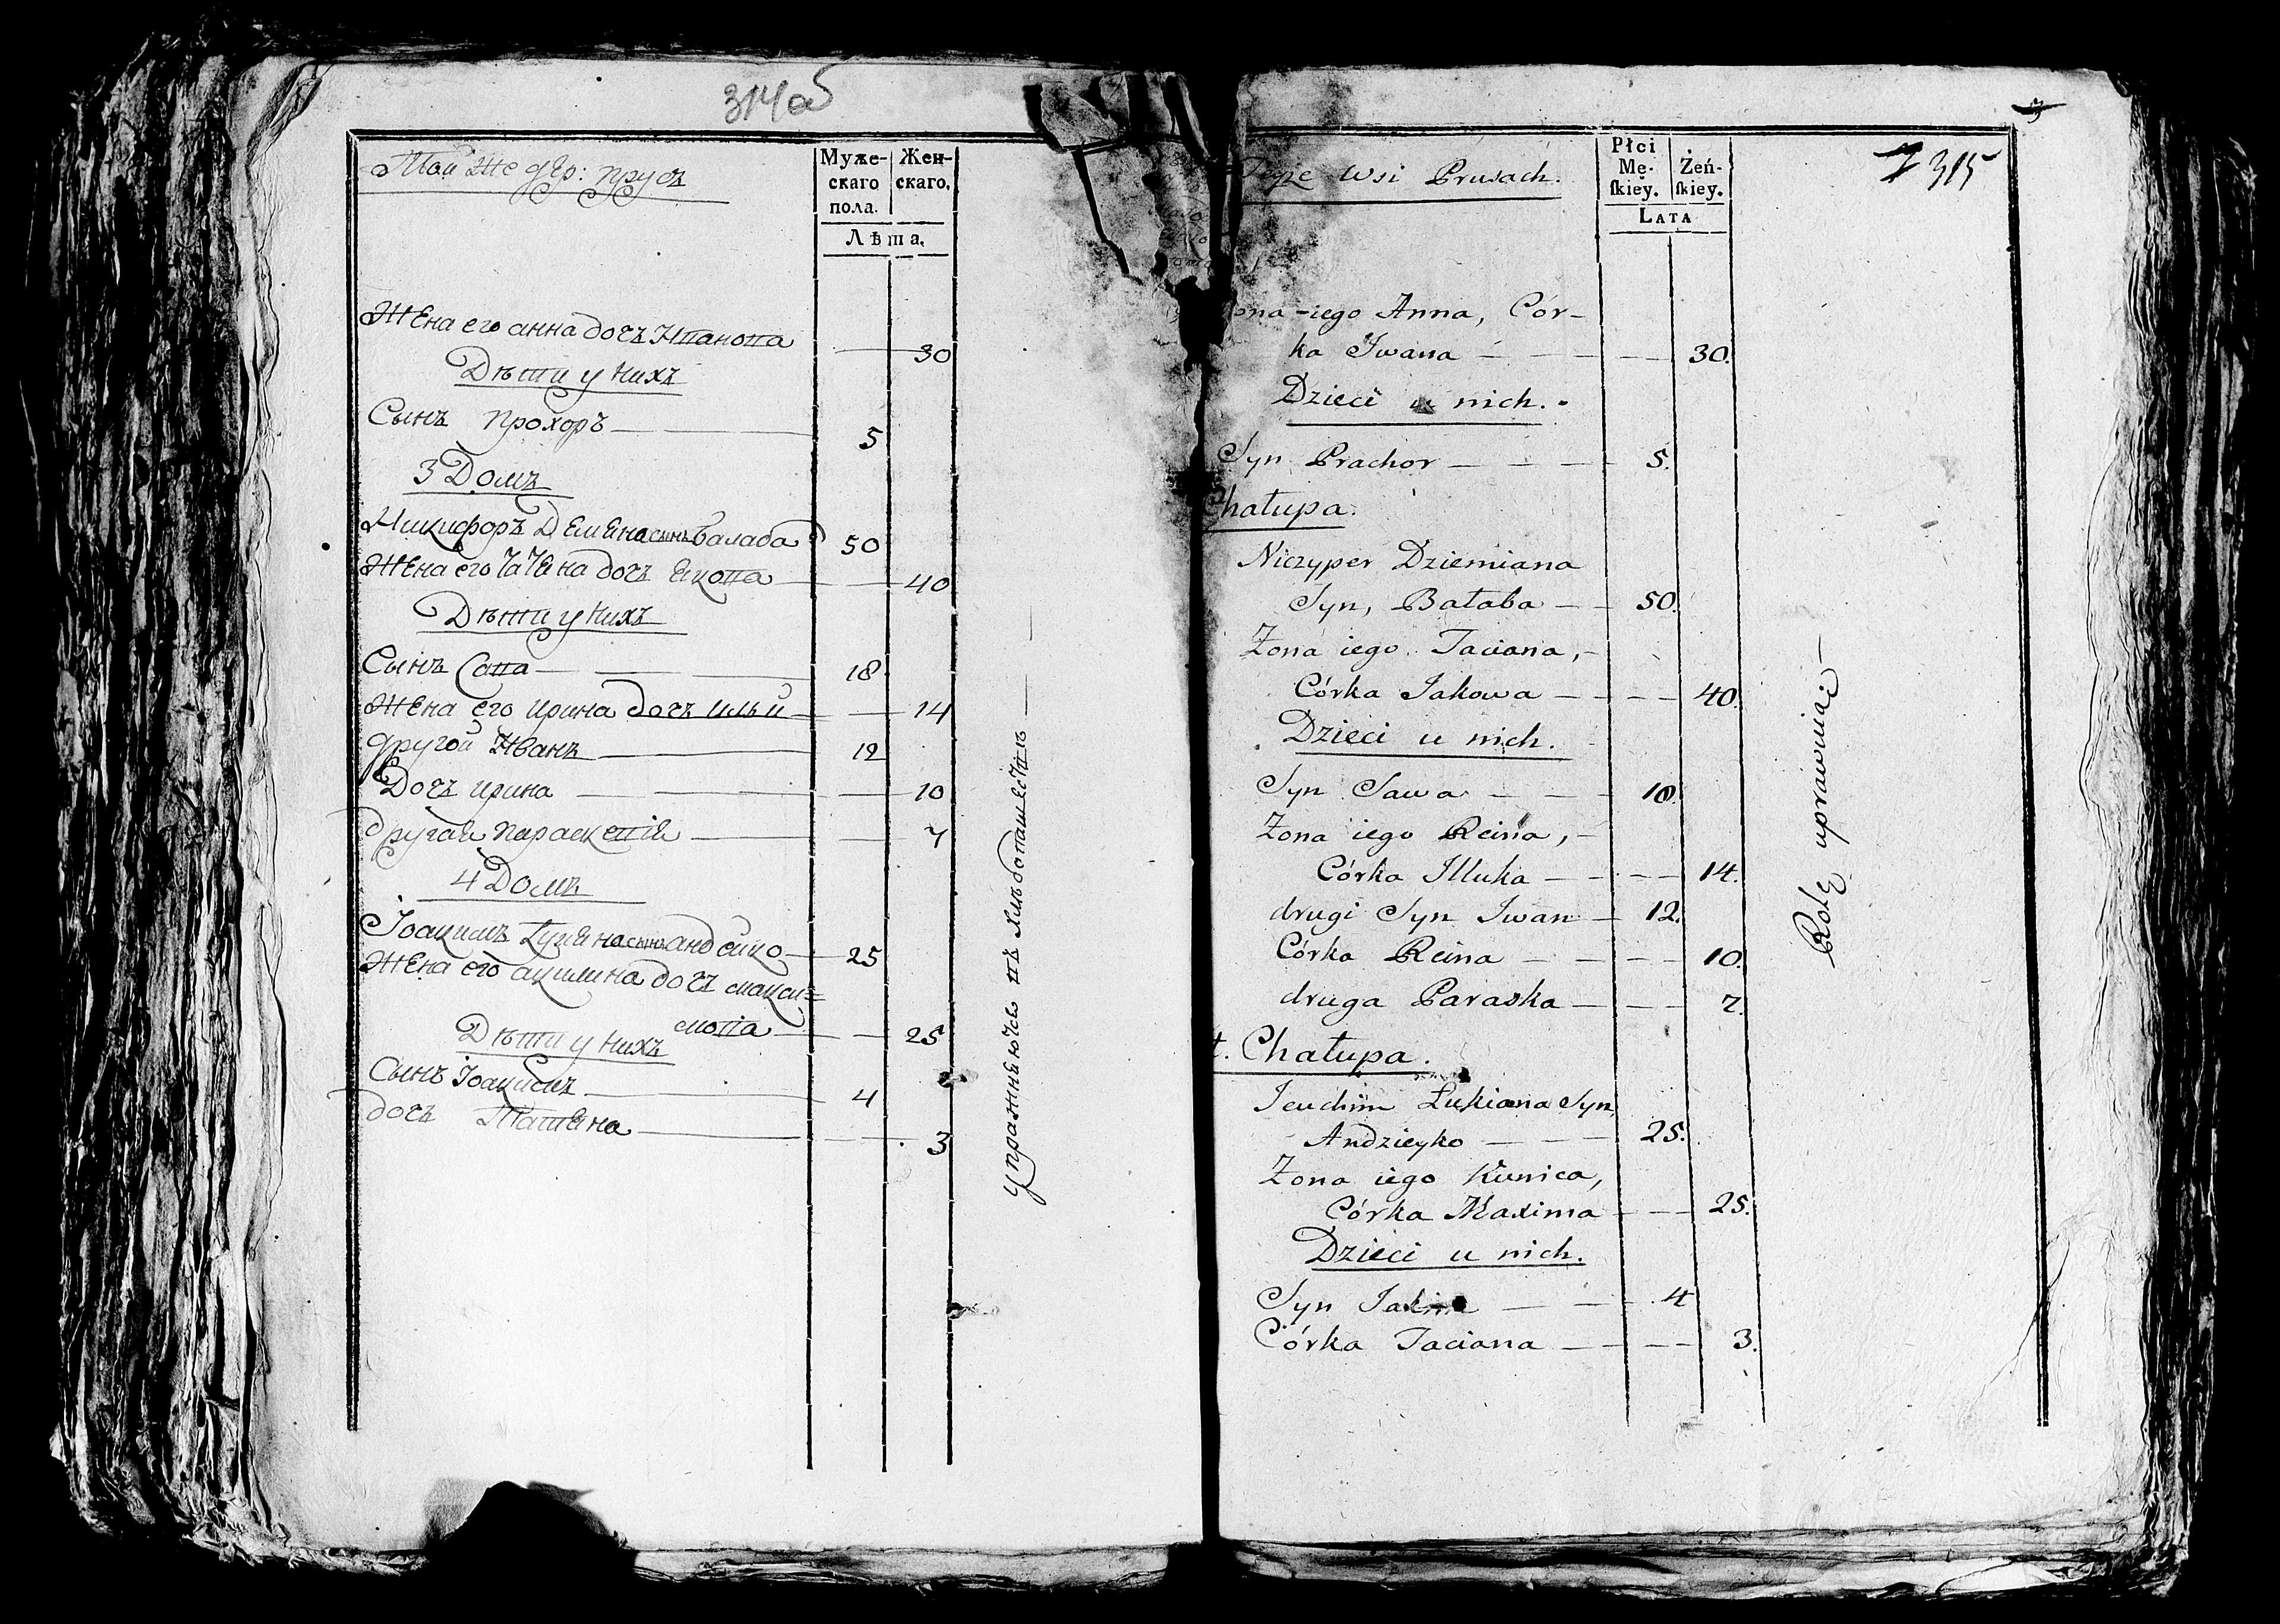 314об
Той же дер: Прусъ
Муже-
скаго
пола.
Жен-
скаго.
Лѣта.
Жена его анна дочъ Иванова 30
Дѣти у нихъ
Сынъ Прохоръ 5
3 Домъ
Никифоръ Демяна сынъ балаба 50
Жена его татяна дочъ якова 40
Дѣти у нихъ
Сынъ Сава 18
Жена его ирина дочъ ильи 14
другой Иванъ 12
Дочъ ирина 10
другая параскевія 7
4 Домъ
Іоакимъ Лукяна сынъ андейко 25
Жена его акилина дочъ макси=
мова 25
Дѣти у нихъ
Сынъ Іоакимъ 4
дочъ Татяна 3
упражняютъся въ хлѣбопашествѣ
7 315
Teyże wsi Prusach.
Płci
Mę-
skiey.
Żeń-
skiey.
LATA
Żona iego Anna, Cór-
ka Iwana 30.
Dzieci u nich.
Syn Prachor 5.
Chałupa.
Niczyper Dziemiana
Syn, Bałaba 50.
Żona iego Taciana,
Córka Jakowa 40.
Dzieci u nich.
Syn Sawa 18.
Żona iego Reina,
Córka Illuka 14.
drugi Syn Iwan 12.
Córka Reina 10.
druga Paraska 7.
4. Chałupa.
Jeuchim Łukiana Syn
Andzieyko 25.
Żona iego Kunica,
Córka Maxima 25.
Dzieci u nich.
Syn Jakim 4
Córka Taciana 3.
Rolę uprawuiąc